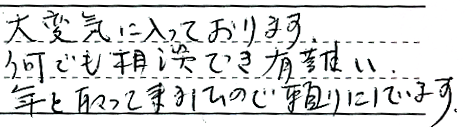 大変気に入っております。
何でも相談でき有難い。
年と取って来ましたので頼りにしています。